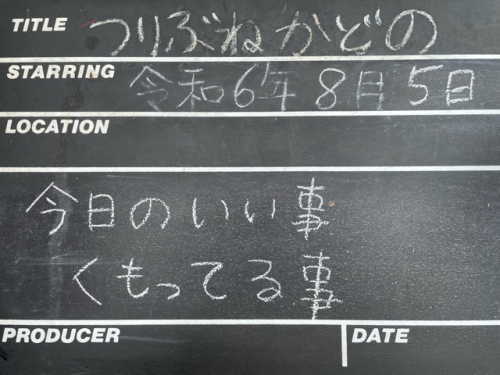 TITLE つりぶねかどの
STARRING 令和6年8月5日
LOCATION
今日のいい事
くもってる事
PRODUCER DATE